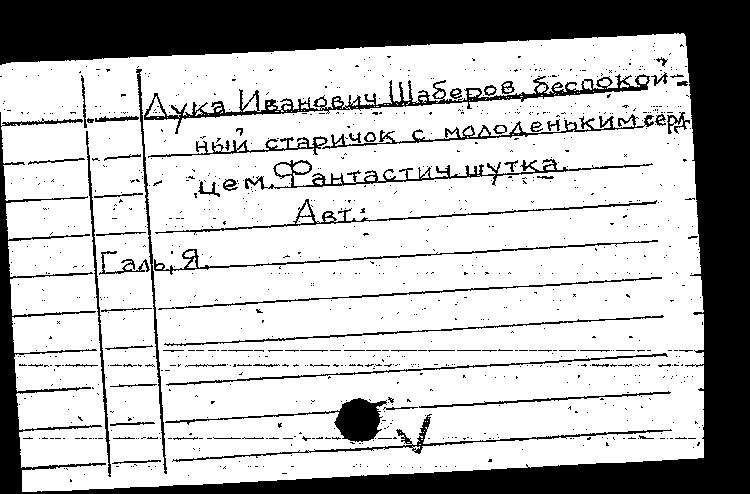 Лука Иванович Шаберов, беспокой-
ный старичок с молоденьким серд-
цем. Фантастич. шутка.
Авт.:
Галь, Я.